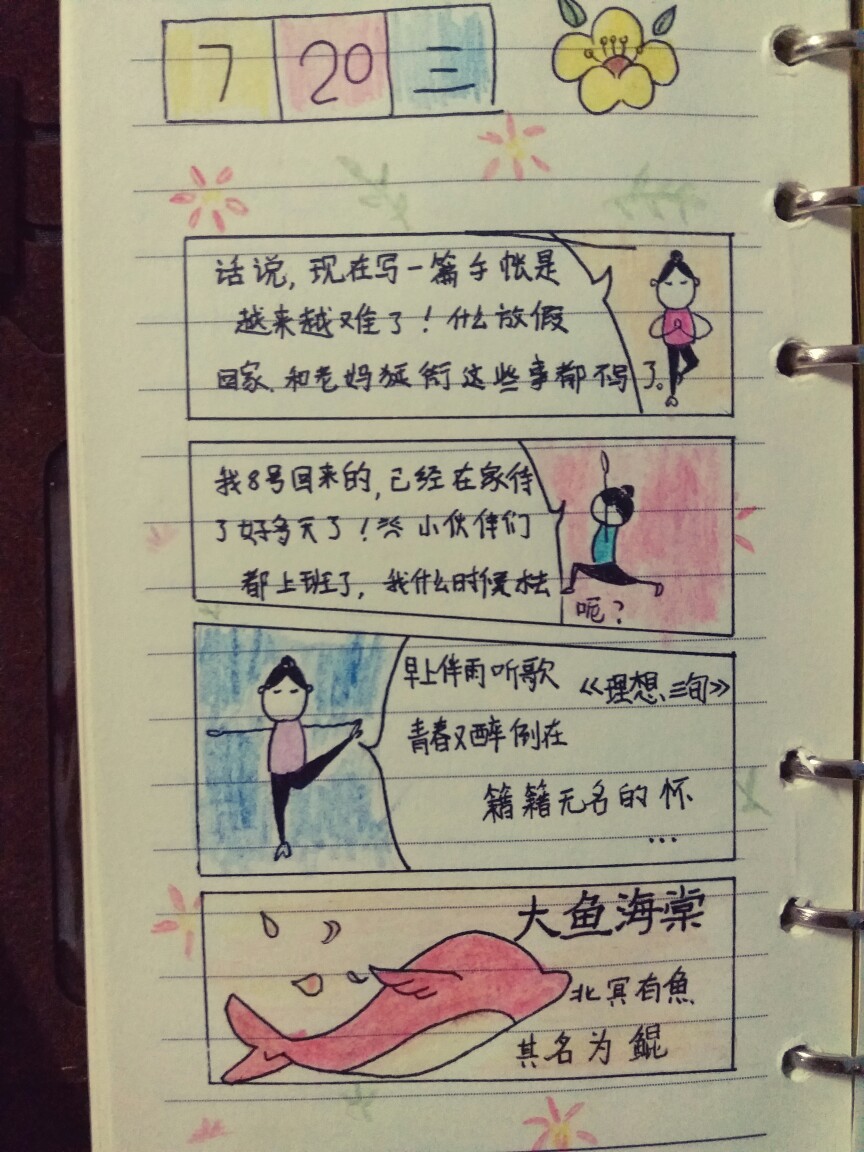 7 20 三
话说,现在写一篇手帐是
越来越难了！什么放假
回家.和老妈逛街这些事都不写了。
我8号回来的,已经在家待
了好多天了！小伙伴们
都上班了,我什么时候去
呃？
早上伴雨听歌《理想三旬》
青春又醉倒在
籍籍无名的怀
...
大鱼海棠
北冥有魚
其名为鲲